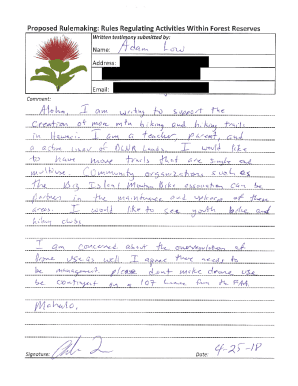 Proposed Rulemaking: Rules Regulating Activities Within Forest Reserves
Written testimony submitted by:
Name: Adam Low
Address:
Email:
Comment:
Aloha, I am writing to support the
creation of more mtn biking and hiking trails
in Hawaii. I am a teacher, parent, and
a active user of DLNR lands. I would like
to have more trails that are single and
multiuse. Community organizations such as
the Big Island Mountain Bike association can be
partner in the maintenance and upkeep of these
areas. I would like to see youth bike and
hiking clubs.
I am concerned about the overregulation of
drone use as well. I agree there needs to
be management, please dont make drone use
be contingent on a 107 license from the FAA.
Mahalo,
Signature:
Date: 4-25-18